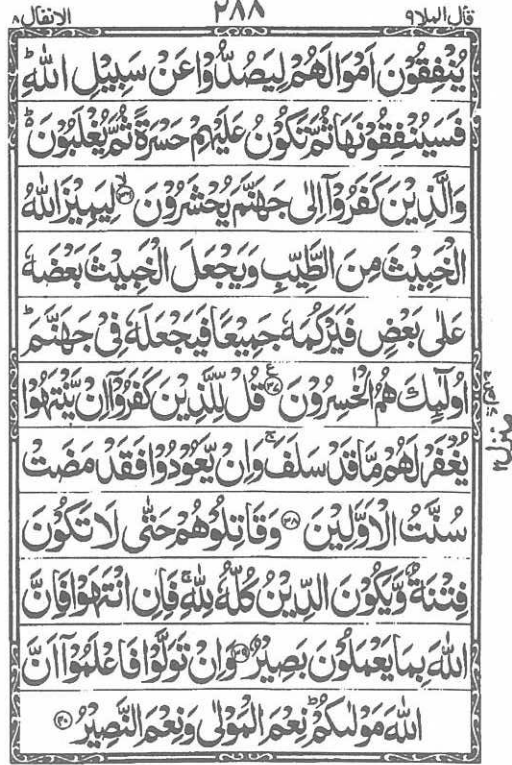 قال الملا۹ ۲۸۸ الانفال۸
يُنْفِقُوْنَ اَمْوَالَهُمْ لِيَصُدُّوْا عَنْ سَبِيْلِ اللّٰهِؕ
فَسَيُنْفِقُوْنَهَا ثُمَّ تَكُوْنُ عَلَيْهِمْ حَسْرَةً ثُمَّ يُغْلَبُوْنَؕ
وَالَّذِيْنَ كَفَرُوْۤا اِلٰى جَهَنَّمَ يُحْشَرُوْنَ ۙ۝۳۶ لِيَمِيْزَ اللّٰهُ
الْخَبِيْثَ مِنَ الطَّيِّبِ وَيَجْعَلَ الْخَبِيْثَ بَعْضَهٗ
عَلٰى بَعْضٍ فَيَرْكُمَهٗ جَمِيْعًا فَيَجْعَلَهٗ فِيْ جَهَنَّمَؕ
اُولٰٓئِكَ هُمُ الْخٰسِرُوْنَ ۝۳۷ع قُلْ لِّلَّذِيْنَ كَفَرُوْۤا اِنْ يَّنْتَهُوْا
يُغْفَرْ لَهُمْ مَّا قَدْ سَلَفَۚ وَاِنْ يَّعُوْدُوْا فَقَدْ مَضَتْ
سُنَّتُ الْاَوَّلِيْنَ ۝۳۸ وَقَاتِلُوْهُمْ حَتّٰى لَا تَكُوْنَ
فِتْنَةٌ وَّيَكُوْنَ الدِّيْنُ كُلُّهٗ لِلّٰهِۚ فَاِنِ انْتَهَوْا فَاِنَّ
اللّٰهَ بِمَا يَعْمَلُوْنَ بَصِيْرٌ ۝۳۹ وَاِنْ تَوَلَّوْا فَاعْلَمُوْۤا اَنَّ
اللّٰهَ مَوْلٰىكُمْؕ نِعْمَ الْمَوْلٰى وَنِعْمَ النَّصِيْرُ ۝۴۰
منزل۲